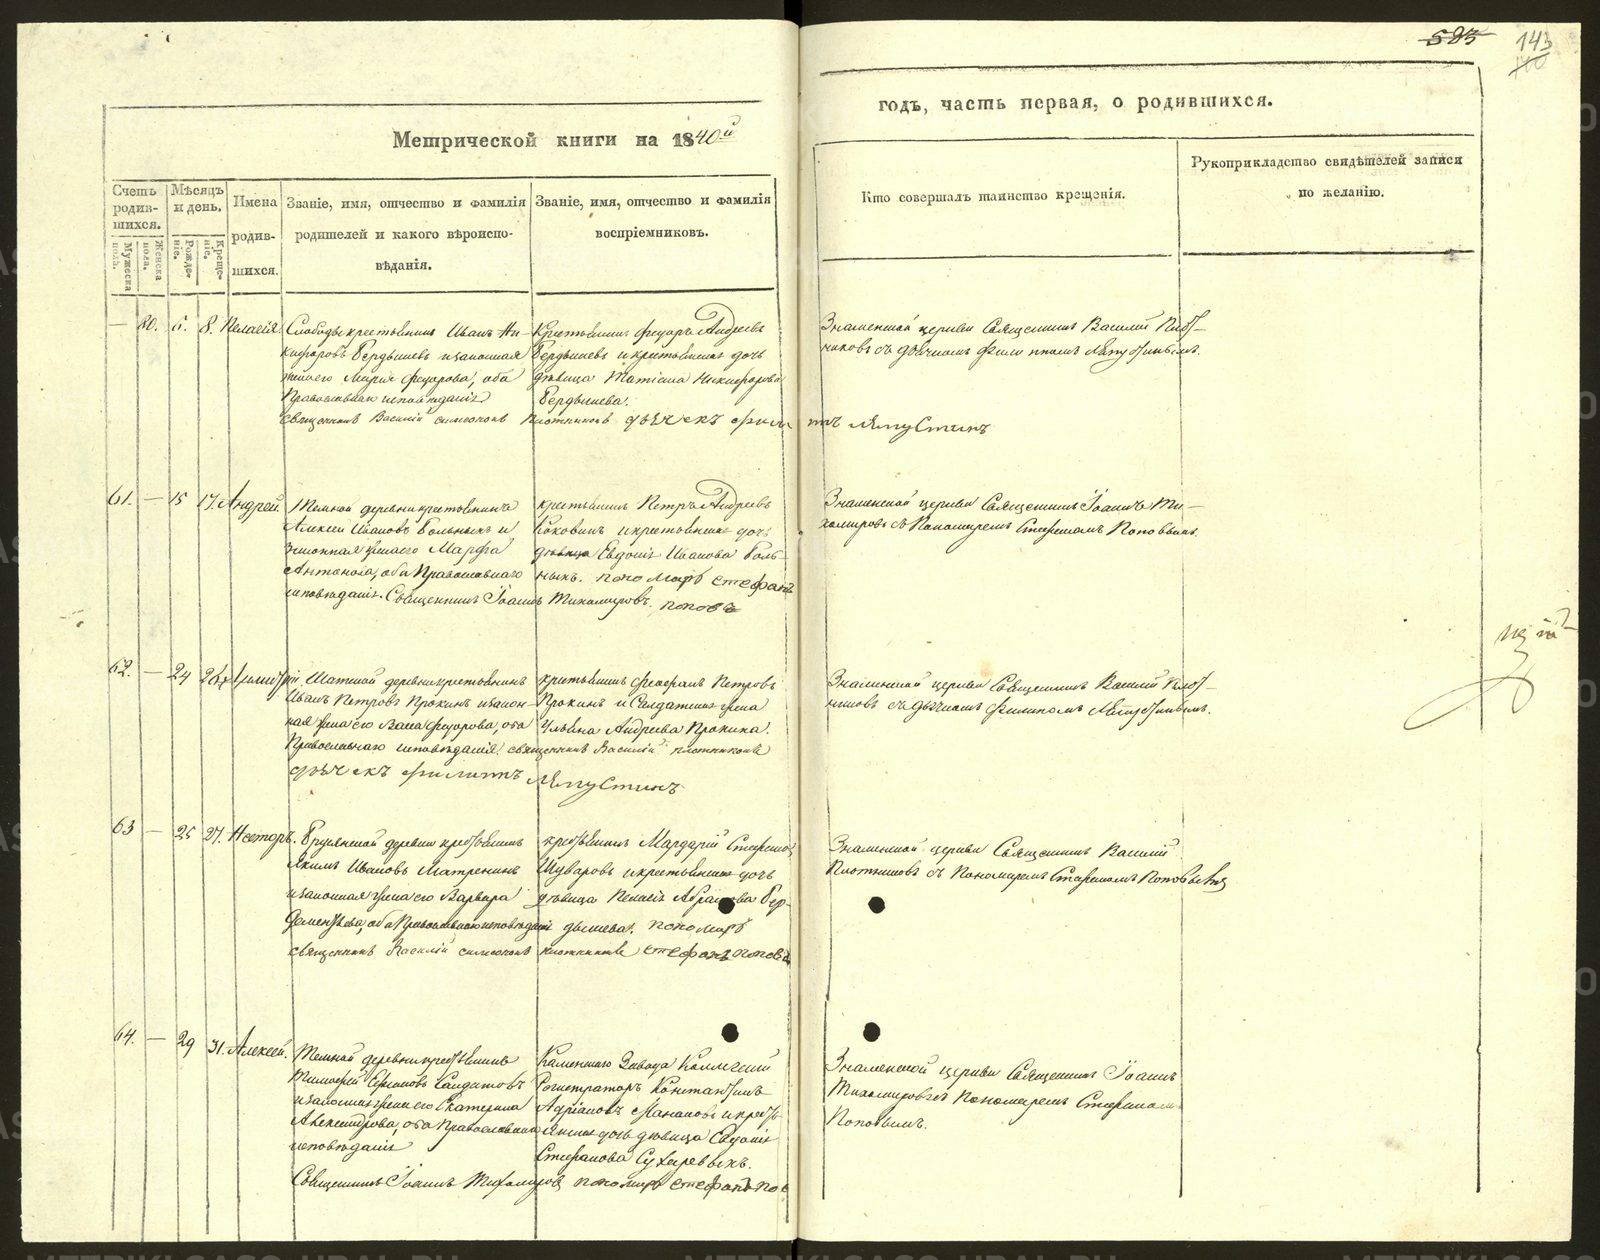 583
143
Метрической книги на 1840й
годъ, часть первая, о родившихся.
Счетъ родив-шихся.
Мужеска пола.
Женска пола.
Мѣсяцъ и день.
Рожде-ніе.
Креще-ніе.
Имена родив-шихся.
Званіе, имя, отчество и фамилія
родителей и какого вѣроиспо-
вѣданія.
Званіе, имя, отчество и фамилія
воспріемниковъ.
Кто совершалъ таинство крещенія.
Рукоприкладство свидѣтелей записи
по желанію.
— 80. 6. 8. Пелагія
Слободы крестьянинъ Иванъ Ни-
кифоровъ Бердышевъ и законная
жена его Марія Федорова, оба
Православнаго исповѣданія
Крестьянинъ Федоръ Андреевъ
Бердышевъ и крестьянская дочь
дѣвица Татіана Никифорова
Бердышева.
священникъ Василій Симеоновъ Плотниковъ дьячекъ Филиппъ Ляпустинъ
Знаменской церкви Священникъ Василій Плот-
никовъ съ дьячкомъ Филиппомъ Ляпустинымъ.
61. — 15 17. Андрей.
Темной деревни крестьянинъ
Алексѣй Ивановъ Больныхъ и
законная жена его Марфа
Антонова, оба Православнаго
исповѣданія. Священникъ Іоаннъ Тихомировъ.
крестьянинъ Петръ Андреевъ
Коковинъ и крестьянская дочь
дѣвица Евдокія Иванова Боль-
ныхъ. пономарь стефанъ
поповъ
Знаменской церкви Священникъ Іоаннъ Ти-
хомировъ съ Пономаремъ Стефаномъ Поповымъ.
62. — 24 26 Димитрій
Шатской деревни крестьянинъ
Иванъ Петровъ Прокинъ и закон-
ная жена его Васа Федорова, оба
Православнаго исповѣданія. священникъ Василій плотниковъ
дьячекъ филиппъ Ляпустинъ
крестьянинъ Феофанъ Петровъ
Прокинъ и Солдатская жена
Ульяна Андреева Прокина.
Знаменской церкви Священникъ Василій Плот-
никовъ съ дьячкомъ Филиппомъ Ляпустинымъ.
63 — 25 27. Несторъ.
Брусянской деревни крестьянинъ
Якимъ Ивановъ Матренинъ
и законная жена его Варвара
Дементьева, оба Православнаго исповѣданія
священникъ Василій симеоновъ плотниковъ стефанъ поповъ
крестьянинъ Мардарій Стефановъ
Шуваровъ и крестьянская дочь
дѣвица Пелагія Абрамова Бер-
дышева. пономарь
Знаменской церкви Священникъ Василій
Плотниковъ съ Пономаремъ Стефаномъ Поповымъ
64. — 29 31. Алексѣй.
Темной деревни крестьянинъ
Тимофей Ефимовъ Солдатовъ
и законная жена его Екатерина
Александрова, оба Православнаго
исповѣданія
Священникъ Іоаннъ Тихомировъ пономарь стефанъ пос
Каменскаго Завода Коллежскій
Регистраторъ Константинъ
Адріановъ и крестьянская дочь дѣвица Евдокія
Стефанова Сухаревыхъ.
Знаменской церкви Священникъ Іоаннъ
Тихомировъ съ Пономаремъ Стефаномъ
Поповымъ.